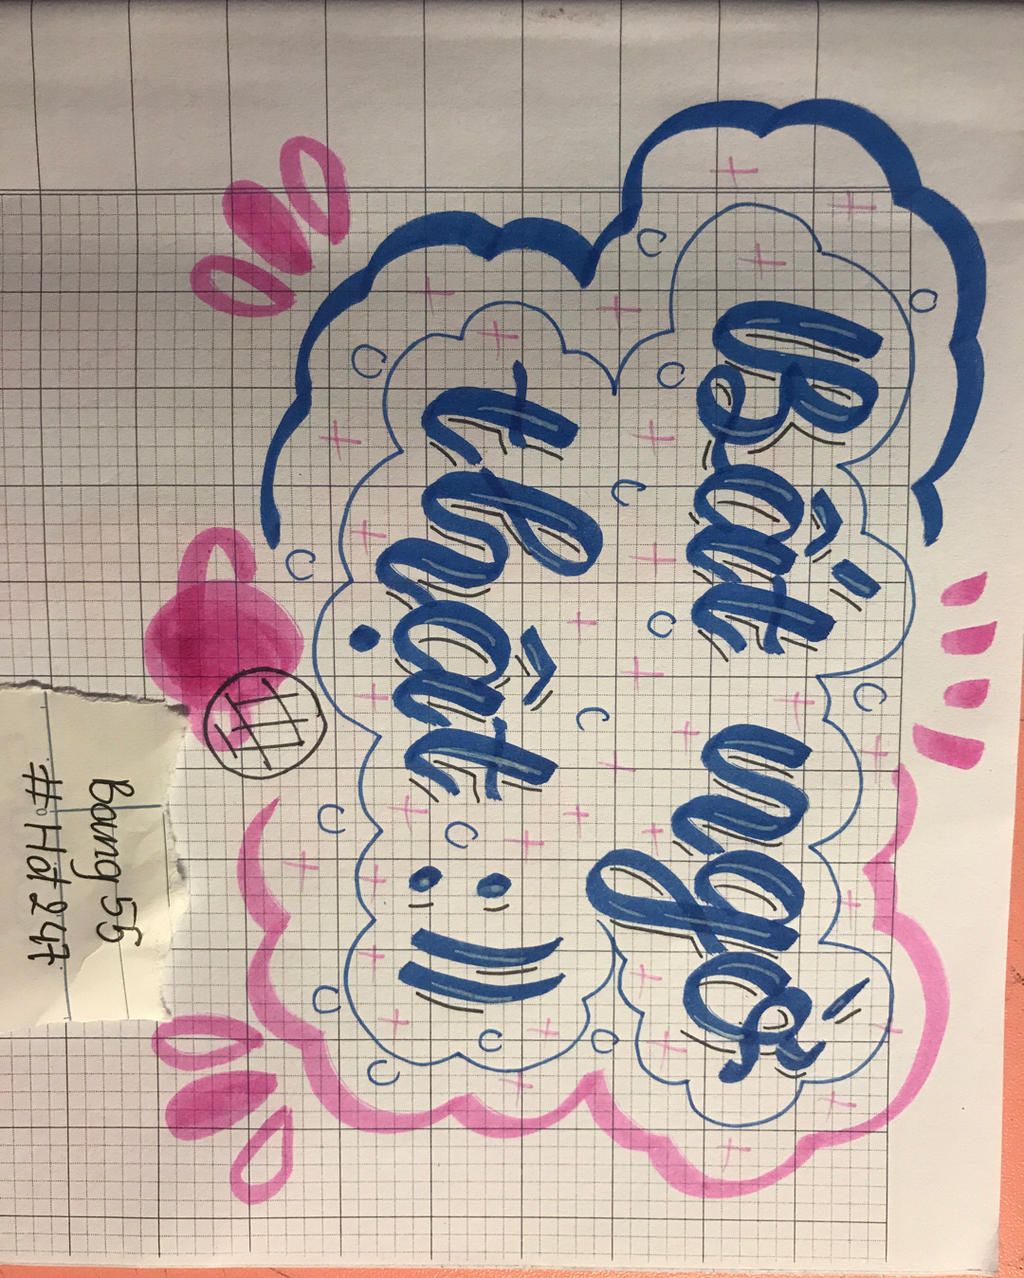 Bất ngờ
thật :))
boung 55
#Hát247